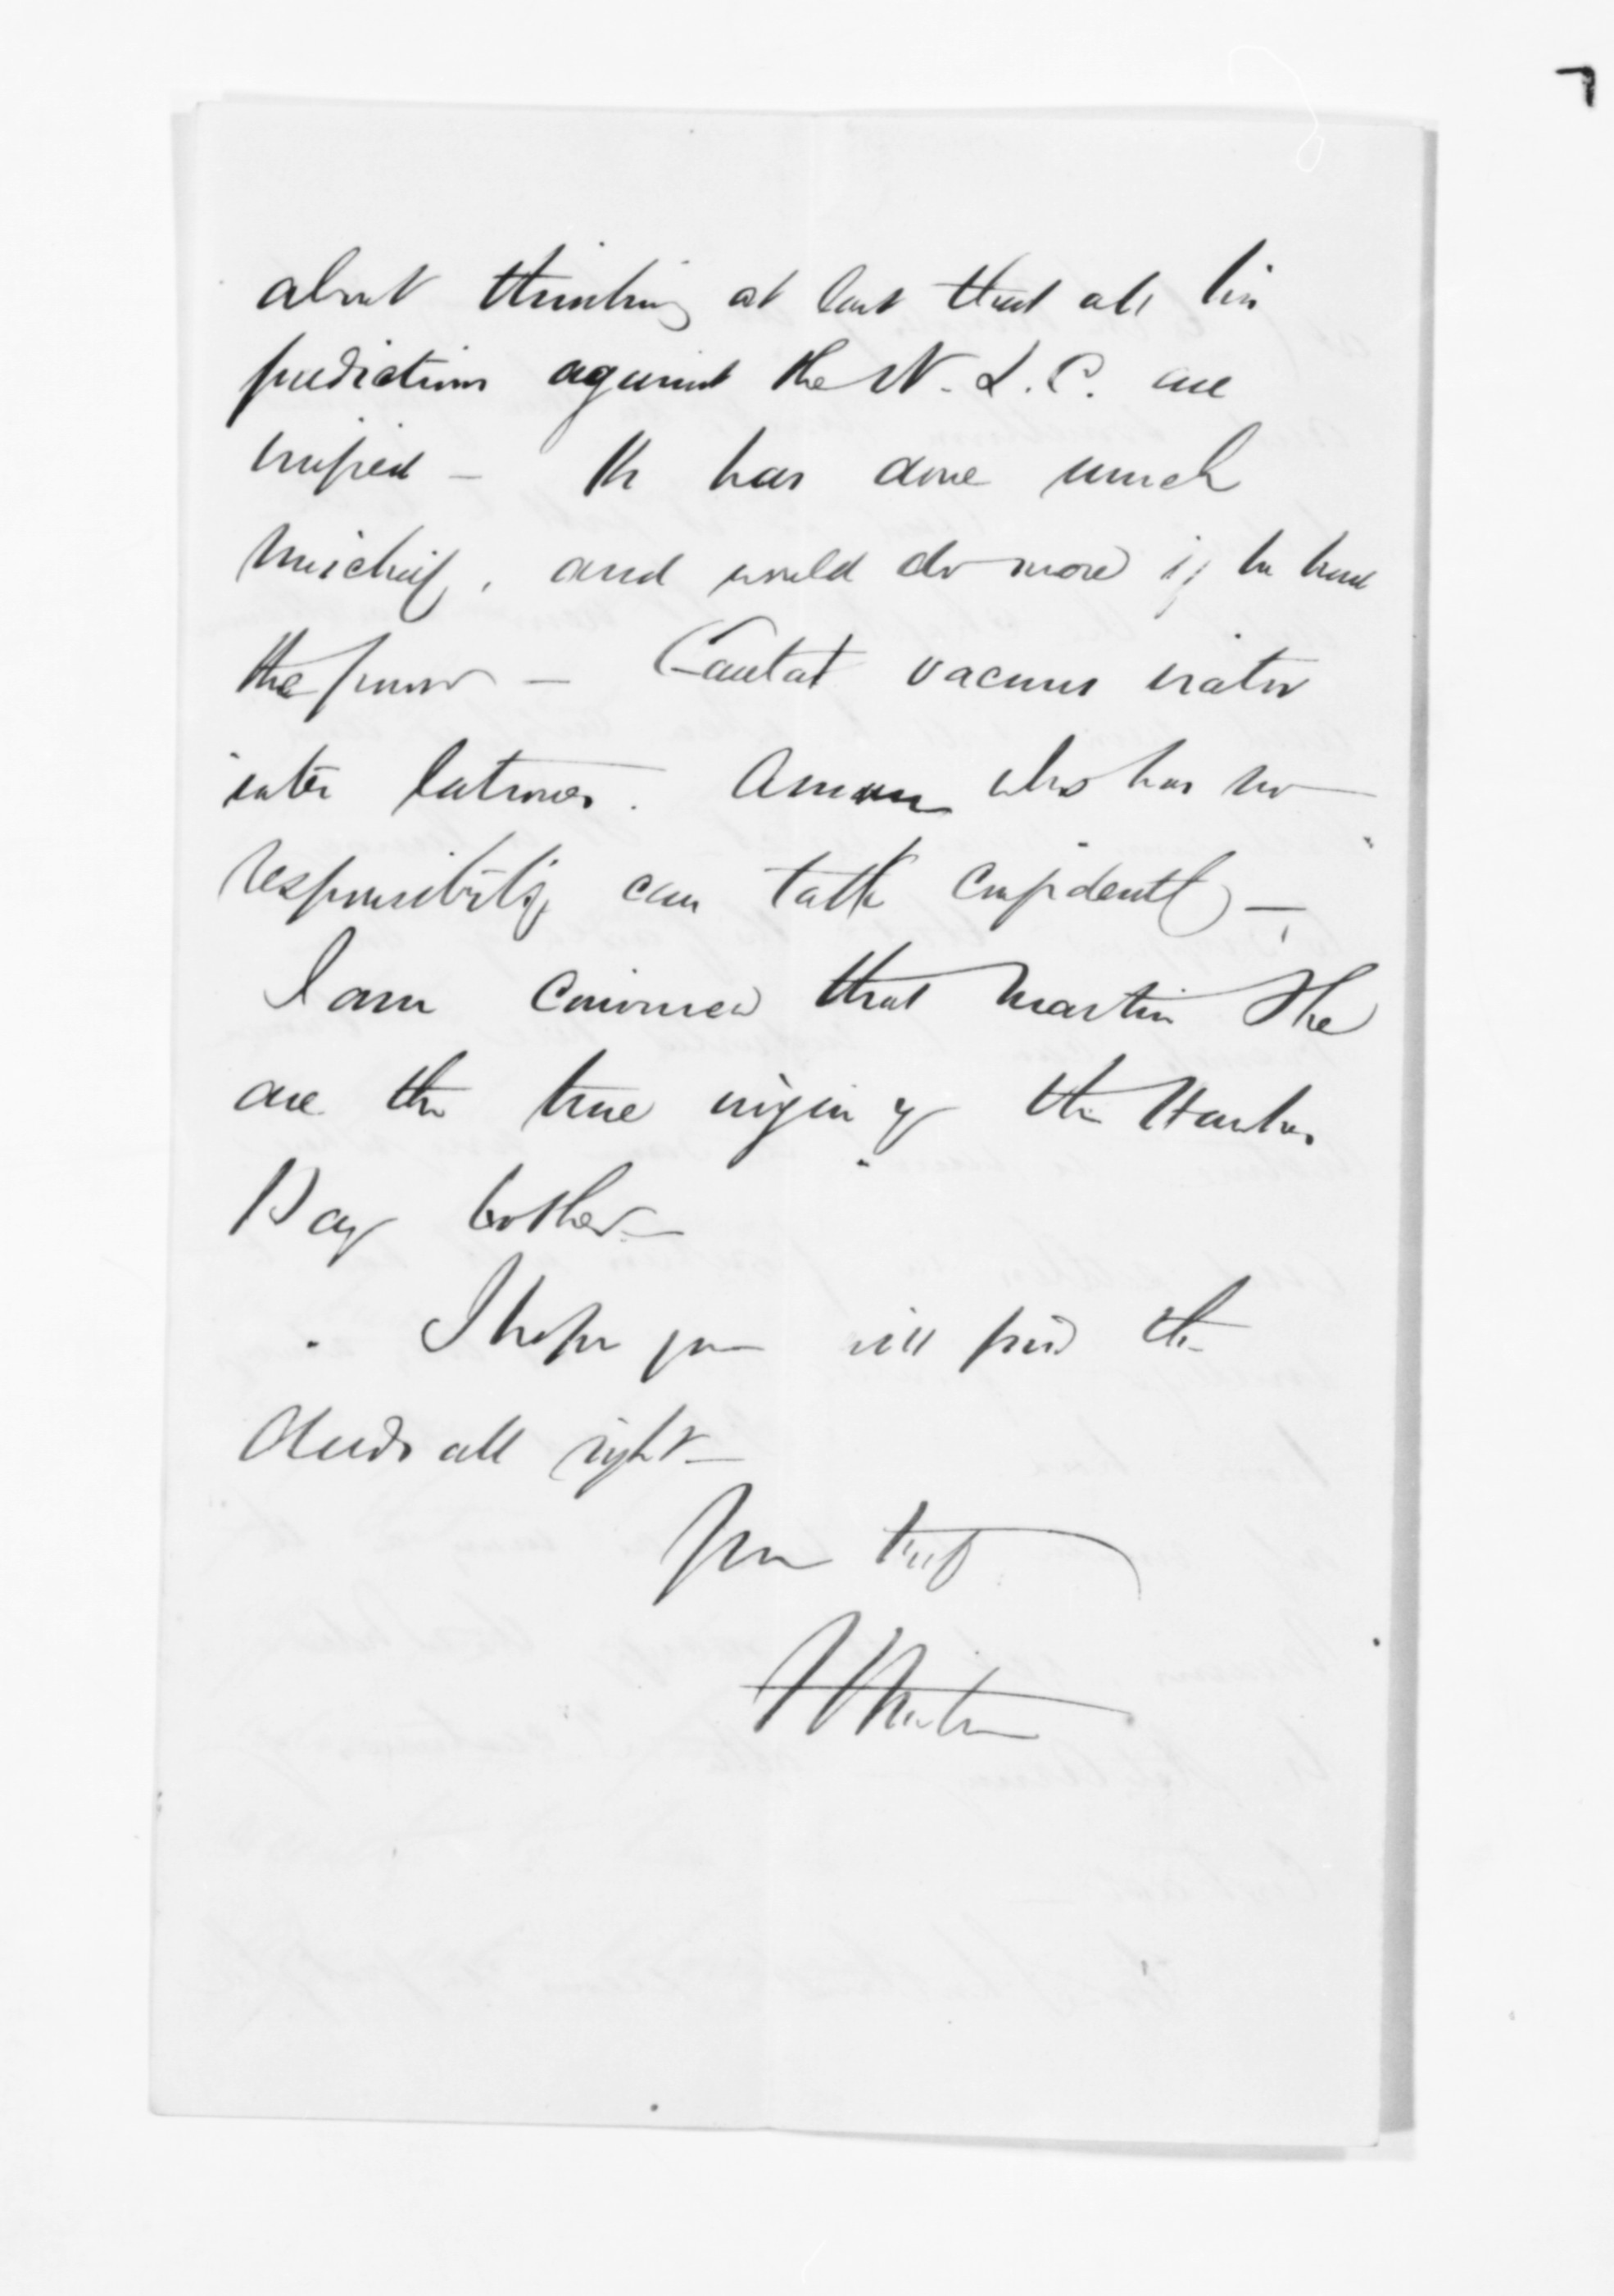 about thinking at last that all his
predictions against the N.Z.C. are
verified - He has done much
mischief, and would do more if he had
the power - Cantat vacuus viator
inter latrones. A man who has no
responsibility can talk confidently -
I am convinced that Martin &
are the true origin of the Hawkes
Bay bother -
I hope you will find the
deeds all right -
Yours truly